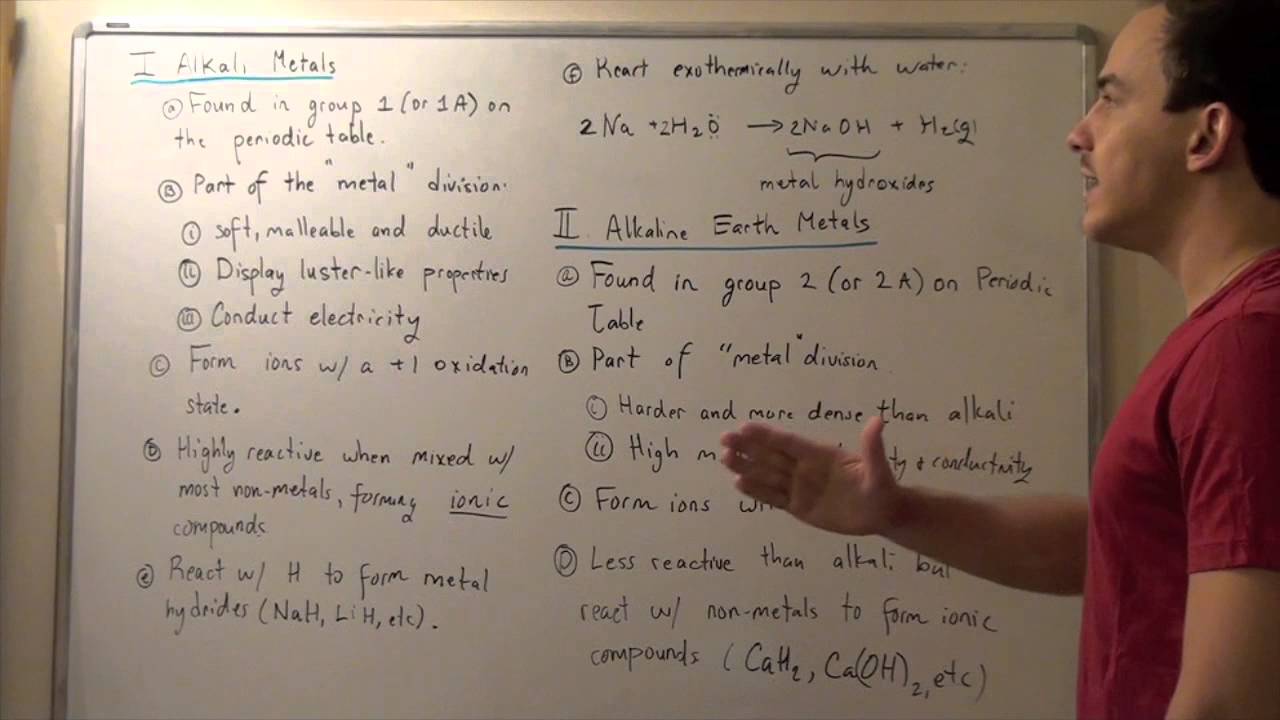 I Alkali Metals
ⓐ Found in group 1 (or 1A) on
the periodic table.
Ⓑ Part of the "metal" division.
ⓘ soft, malleable and ductile
(ii) Display luster-like properties
(iii) Conduct electricity
Ⓒ Form ions w/ a +1 oxidation
state.
Ⓓ Highly reactive when mixed w/
most non-metals, forming ionic
compounds
ⓔ React w/ H to form metal
hydrides (NaH, LiH, etc).
ⓕ React exothermically with water:
2Na + 2H₂O → 2NaOH + H₂(g)
metal hydroxides
II. Alkaline Earth Metals
ⓐ Found in group 2 (or 2A) on Periodic
Table
Ⓑ Part of "metal" division
ⓘ Harder and more dense than alkali
(ii) High & conductivity
Ⓒ Form ions
Ⓓ Less reactive than alkali but
react w/ non-metals to form ionic
compounds (CaH₂, Ca(OH)₂, etc)